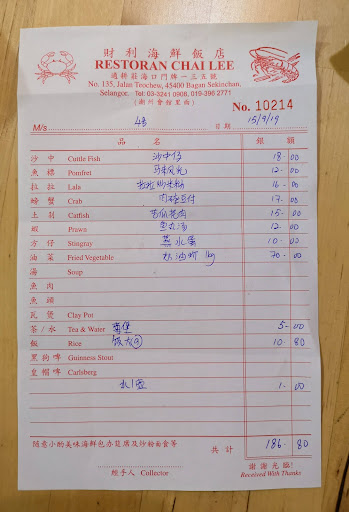 財利海鮮飯店
RESTORAN CHAI LEE
適耕莊海口門牌一三五號
No. 135, Jalan Teochew, 45400 Bagan Sekinchan,
Selangor. Tel: 03-3241 0908, 019-396 2771
(潮州會館里面)
No. 10214
M/s 日期 15/9/19
品名 銀額
沙中 Cuttle Fish 18.00
魚鯧 Pomfret 12.00
拉拉 Lala 拉拉炒米粉 16.00
螃蟹 Crab 肉碎豆付 17.00
土剁 Catfish 苦瓜花肉 15.00
蝦 Prawn 12.00
方仔 Stingray 蒸水蛋 10.00
油菜 Fried Vegetable 奶油虾 1kg 70.00
湯 Soup
魚肉
魚頭
瓦煲 Clay Pot
茶/水 Tea & Water 5.00
飯 Rice 饭大 10.80
黑狗啤 Guinness Stout
皇帽啤 Carlsberg
水1壶 1.00
隨意小酌美味海鮮包办筵席及炒粉面會等 共計 186.80
經手人 Collector
謝謝光臨!
Received With Thanks